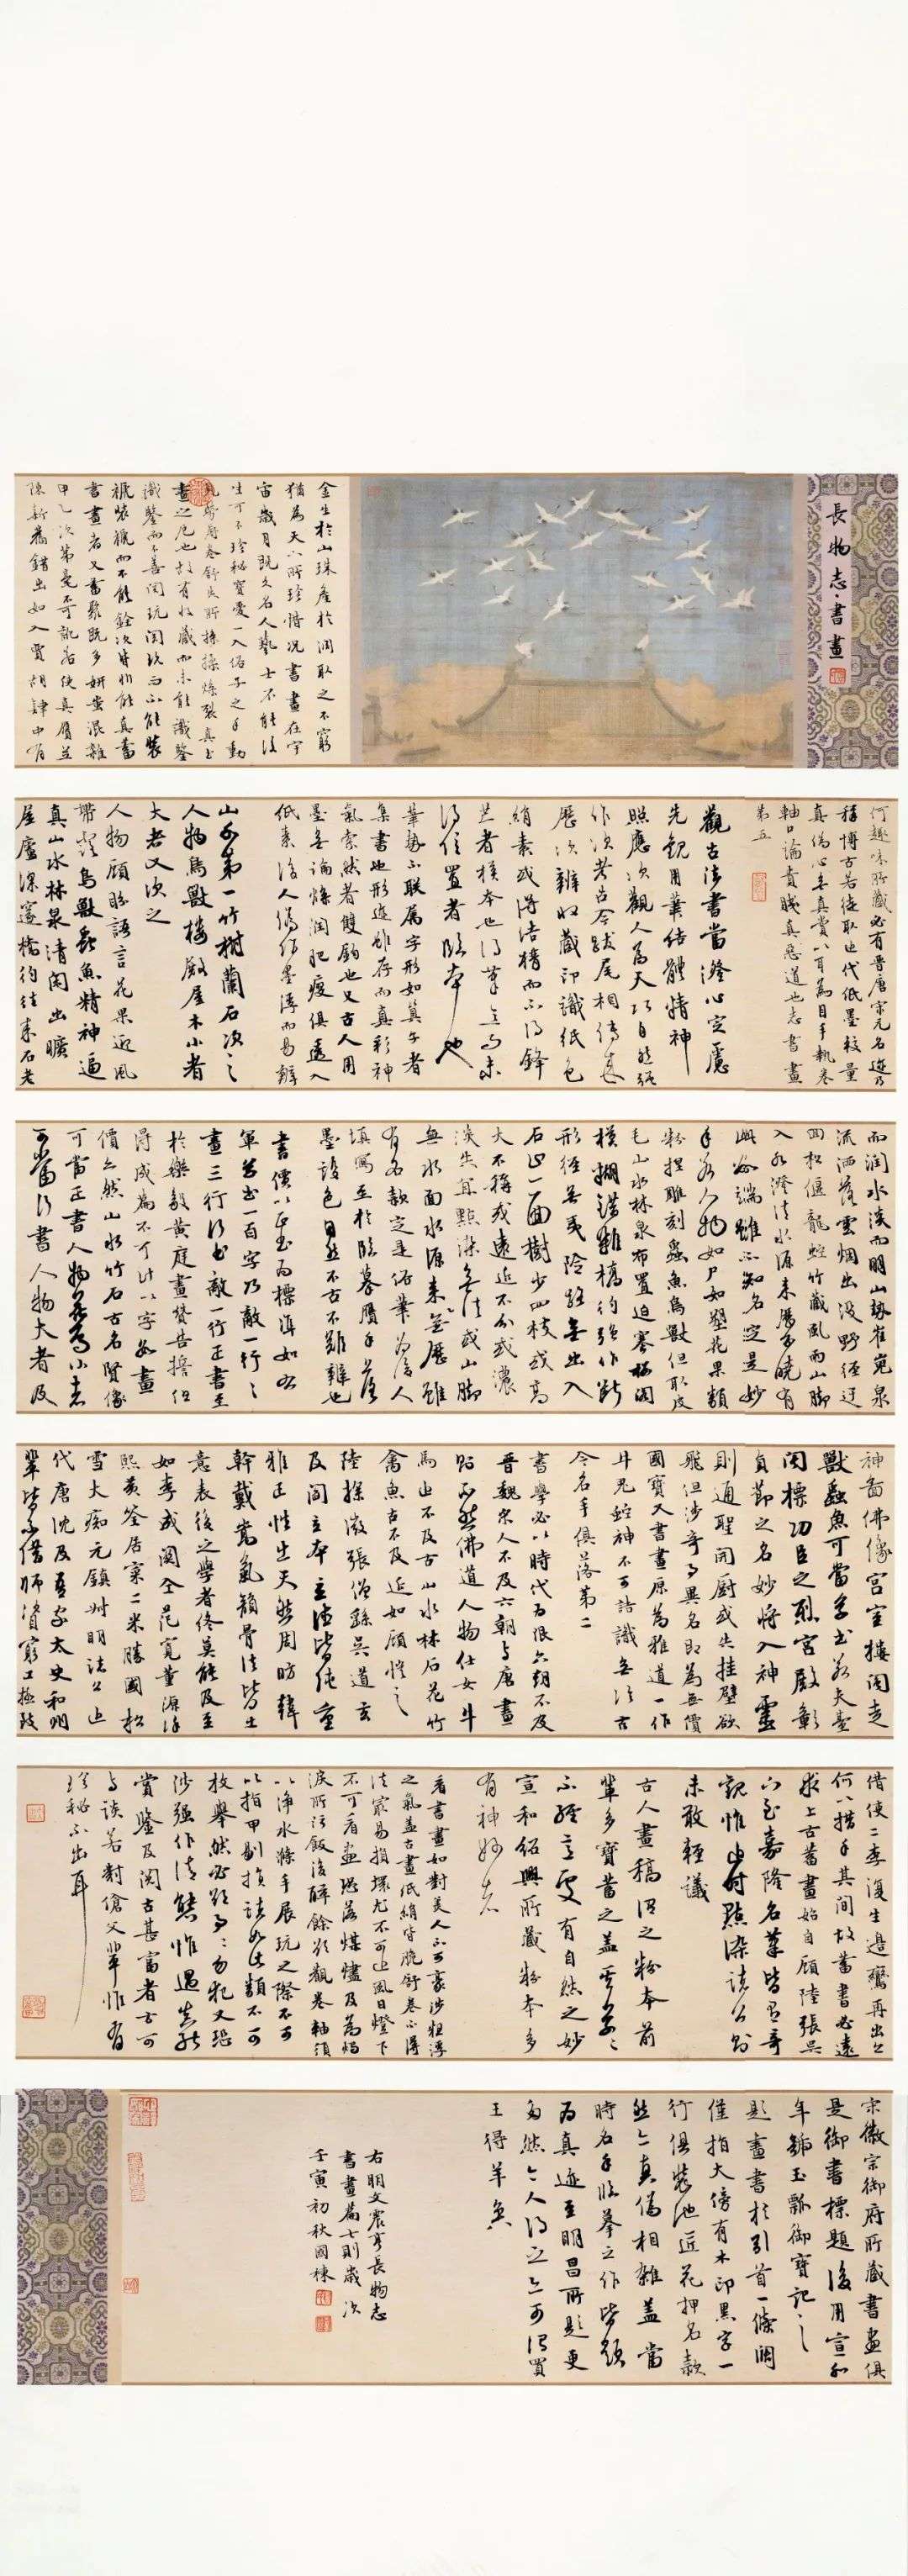 長物志·書畫
金生於山珠產於淵取之不窮
猶為天下所珍惜況書畫在宇
宙歲月既久名人藝士不能復
生可不珍秘寶愛一入俗子之手動
見勞辱卷舒失所操揉燥裂真書
畫之厄也故有收藏而未能識鑒
識鑒而不善閱玩閱玩而不能裝
褫裝褫而不能銓次皆非能真蓄
書畫者又蓄聚既多妍蚩混雜
甲乙次第毫不可訛若使真贗並
陳新舊錯出如入賈胡肆中有
何趣味所藏必有晉唐宋元名蹟乃
稱博古若徒取近代紙墨較量
真偽心無真賞以耳為目手執卷
軸口論貴賤真惡道也志書畫
第五
觀古法書當澄心定慮
先觀用筆結體精神
照應次觀人為天巧自然強
作次考古今跋尾相傳來
歷次辨收藏印識紙色
絹素或得結構而不得鋒
芒者模本也得筆意而未
得位置者臨本也
筆勢不聯屬字形如算子者
集書也形迹雖存而真彩神
氣索然者雙鉤也又古人用
墨無論燥潤肥瘦俱透入
紙素後人偽作墨浮而易辨
山水第一竹樹蘭石次之
人物鳥獸樓殿屋木小者
大者又次之
人物顧盼語言花果迎風
帶露鳥獸蟲魚精神逼
真山水林泉清閑幽曠
屋廬深邃橋彴往來石老
而潤水淡而明山勢崔嵬泉
流洒落雲烟出沒野徑迂
回松偃龍蛇竹藏風雨山腳
入水澄清水源來歷分曉有
此數端雖不知名定是妙
手若人物如尸如塑花果類
粉捏雕刻蟲魚鳥獸但取皮
毛山水林泉布置迫塞樓閣
模糊錯雜橋彴強作斷
形徑無夷險路無出入
石止一面樹少四枝或高
大不稱或遠近不分或濃
淡失宜點染無法或山腳
無水面水源無來歷雖
有名款定是俗筆為後人
填寫至於臨摹贗手落
墨設色自然不古不難辨也
書價以正書為標準如右
軍草書一百字乃敵一行行
書三行行書敵一行正書至
於樂毅黃庭畫贊告誓但
得成篇不可計以字數畫
價亦然山水竹石古名賢像
可當正書人物花鳥小者
可當行書人物大者及
神圖佛像宮室樓閣走
獸蟲魚可當草書若夫臺
閣標功臣之烈宮殿彰
貞節之名妙將入神靈
則通聖開廚或失挂壁欲
飛但涉奇事異名即為無價
國寶又書畫原為雅道一作
牛鬼蛇神不可詰識無論古
今名手俱落第二
書學必以時代為限六朝不及
晉魏宋人不及六朝與唐畫
則不然佛道人物仕女牛
馬近不及古山水林石花竹
禽魚古不及近如顧愷之
陸探微張僧繇吳道玄
及閻立本立德皆純重
雅正性出天然周昉韓
幹戴嵩氣韻骨法皆出
意表後之學者終莫能及至
如李成關仝范寬董源徐
熙黃筌居寀二米勝國松
雪大痴元鎮叔明諸公近
代唐沈及吾家太史和州
輩皆不藉師資窮工極致
借使二李復生邊鸞再出亦
何以措手其間故蓄書必遠
求上古蓄畫始自顧陸張吳
下至嘉隆名筆皆有奇
觀惟近時點染諸公則
未敢輕議
古人畫稿謂之粉本前
輩多寶蓄之蓋其草草
不經意處有自然之妙
宣和紹興所藏粉本多
有神妙者
看書畫如對美人不可毫涉粗浮
之氣蓋古畫紙絹皆脆舒卷不得
法最易損壞尤不可近風日燈下
不可看畫恐落煤燼及為燭
淚所污飯後醉餘欲觀卷軸須
以淨水滌手展玩之際不可
以指甲剔損諸如此類不可
枚舉然必欲事事勿犯又恐
涉強作清態惟遇真能
賞鑒及閱古甚富者方可
與談若對傖父輩惟有
珍秘不出耳
宋徽宗御府所藏書畫俱
是御書標題後用宣和
年號玉瓢御寶記之
題畫書於引首一條闊
僅指大傍有木印黑字一
行俱裝池匠花押名款
然亦真偽相雜蓋當
時名手臨摹之作皆題
為真迹至明昌所題更
多然今人得之亦可謂買
王得羊矣
右明文震亨長物志
書畫篇七則歲次
壬寅初秋國棟